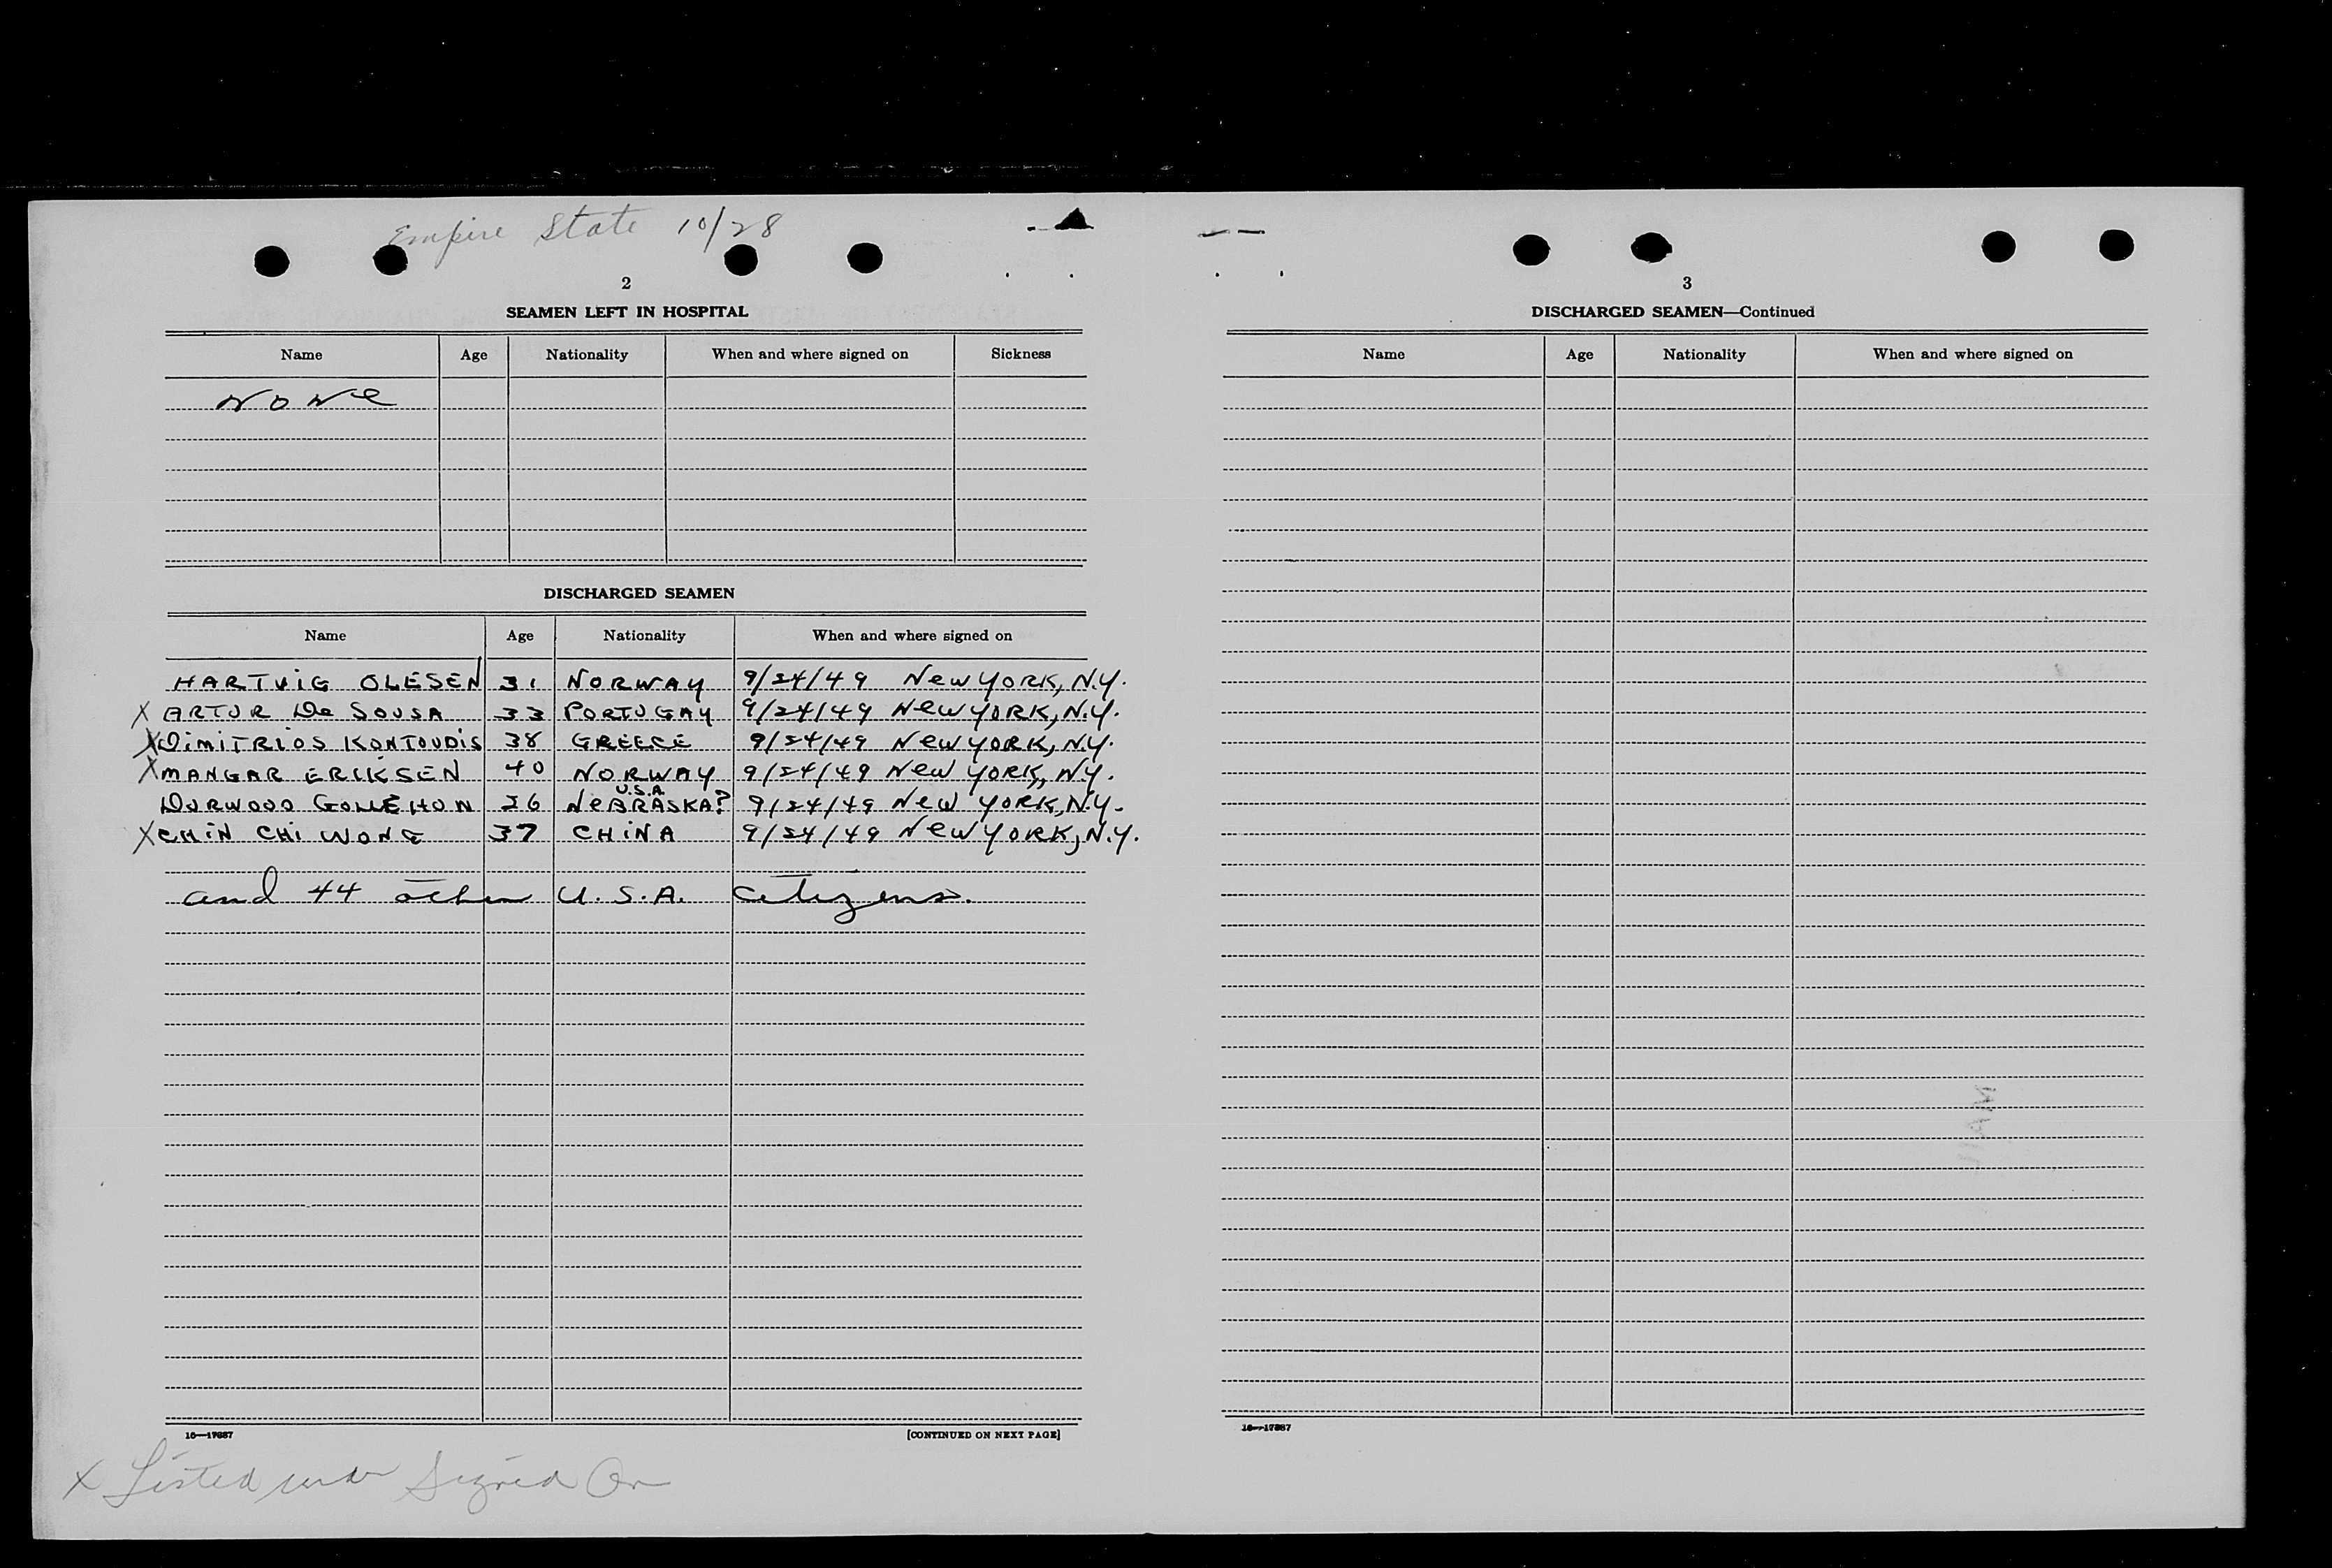 Empire State 10/28
2
SEAMEN LEFT IN HOSPITAL
Name Age Nationality When and where signed on Sickness
None
DISCHARGED SEAMEN
Name Age Nationality When and where signed on
HARTVIG OLESEN 31 NORWAY 9/24/49 New YORK, N.Y.
X ARTUR De SOUSA 33 PORTUGAY 9/24/49 New YORK, N.Y.
X DIMITRIOS KONTOUDIS 38 GREECE 9/24/49 New YORK, N.Y.
X MANGAR ERIKSEN 40 NORWAY 9/24/49 New YORK, N.Y.
U.S.A.
DURWOOD GOLLEHON 26 NEBRASKA? 9/24/49 New YORK, N.Y.
X CHIN CHI WONG 37 CHINA 9/24/49 New YORK, N.Y.
and 44 other U.S.A. citizens.
16—17887
[CONTINUED ON NEXT PAGE]
X Listed under Signed On
3
DISCHARGED SEAMEN—Continued
Name Age Nationality When and where signed on
16—17887